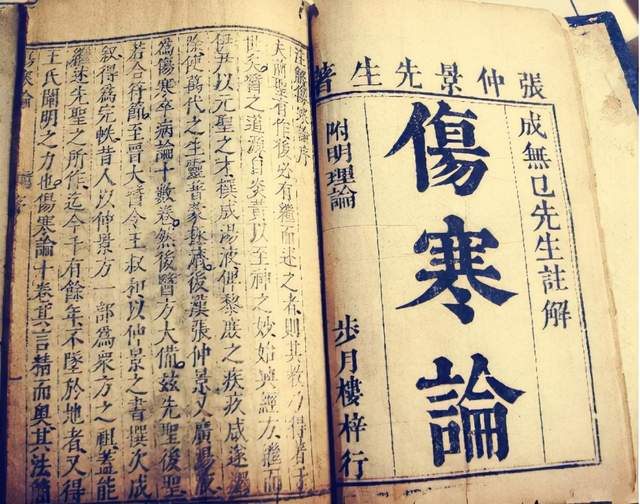 張仲景先生著
成無已先生註解
傷寒論
附明理論
步月樓梓行
註解傷寒論序
夫前聖有作後必有繼而述之者則其教乃得著于
世矣醫之道源自炎黃以至神之妙始興經方繼而
伊尹以元聖之才撰成湯液俾黎庶之疾疢咸遂蠲
除使萬代之生靈普蒙拯濟後漢張仲景又廣湯液
為傷寒卒病論十數卷然後醫方大備茲先聖後聖
若合符節至晉太醫令王叔和以仲景之書撰次成
叙得為完帙昔人以仲景方一部為衆方之祖蓋能
繼述先聖之所作迄今千有餘年不墜於地者又得
王氏闡明之力也傷寒論十卷其言精而奧其法簡
寒論